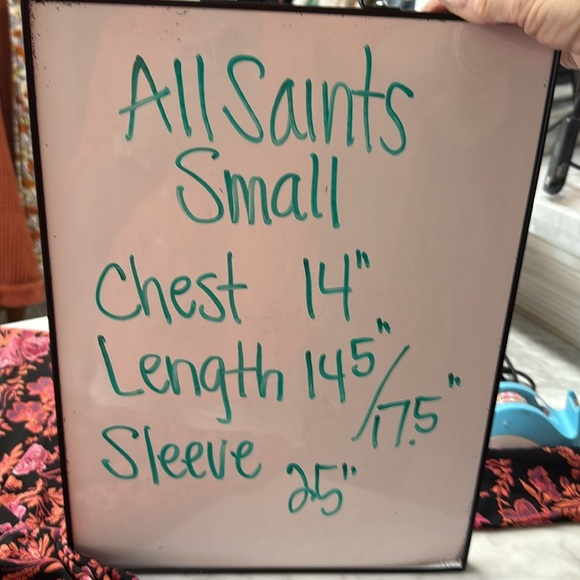 All Saints
Small
Chest 14"
Length 145"/17.5"
Sleeve 25"